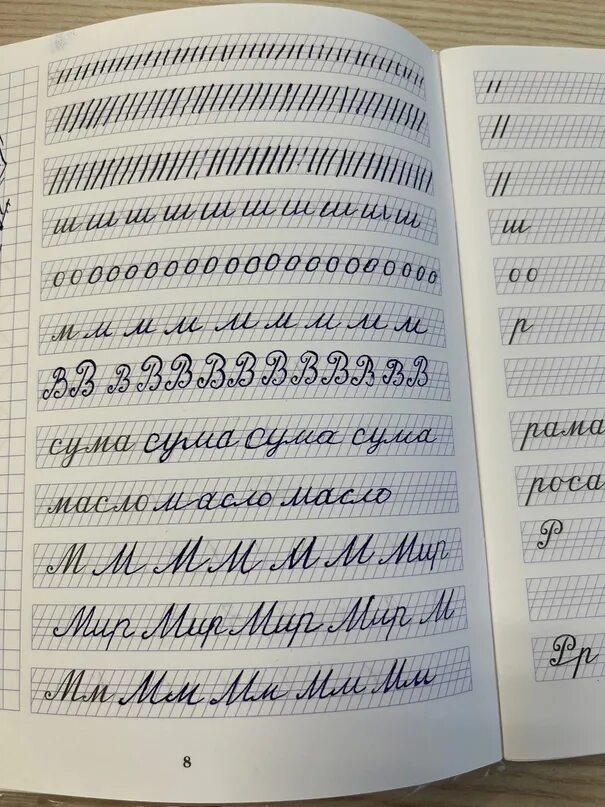 ш ш ш ш ш ш ш ш ш ш
о о о о о о о о о о о о о о о о о о о о о о о о
м м м м м м м м м
В В В В В В В В В В В В В
сума сума сума сума
масло масло масло
М М М М М М Мир
Мир Мир Мир Мир М
Мм Мм Мм Мм Мм
8
ш
о о
р
рама
роса
Р
Рр